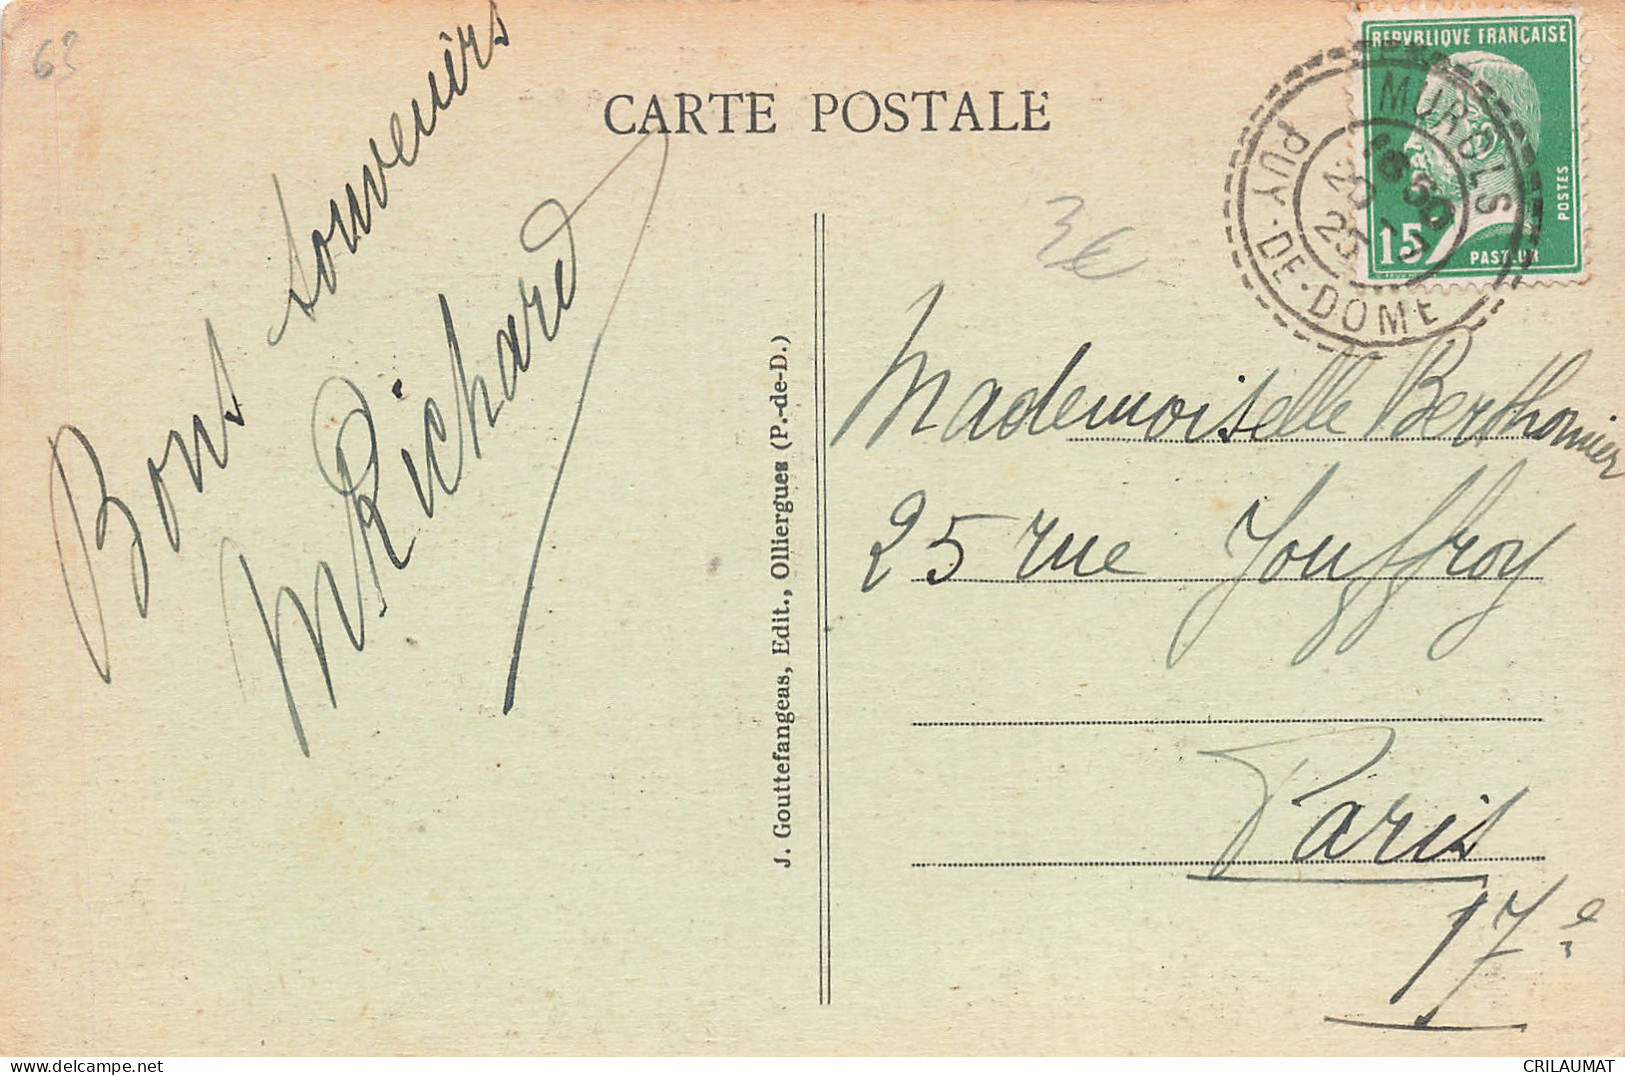 63
Bons souvenirs
M Richard
CARTE POSTALE
3€
J. Gouttefangeas, Edit., Olliergues (P.-de-D.)
REPVBLIQVE FRANÇAISE
POSTES
15
PASTEUR
MUROLS
PUY-DE-DOME
25
Mademoiselle Berthomier
25 rue Jouffroy
Paris
17e
CRILAUMAT